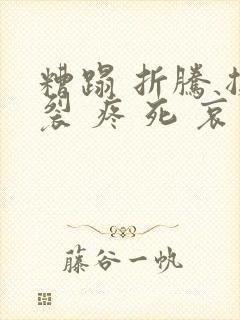 糟蹋 折騰、
裂 疼 死 哀
藤谷一帆